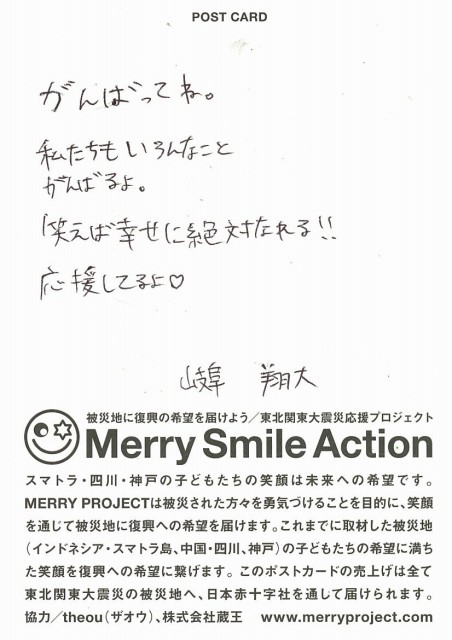 POST CARD
がんばってね。
私たちもいろんなこと
がんばるよ。
笑えば幸せに絶対なれる!!
応援してるよ♡
岐阜 翔大
被災地に復興の希望を届けよう／東北関東大震災応援プロジェクト
Merry Smile Action
スマトラ・四川・神戸の子どもたちの笑顔は未来への希望です。
MERRY PROJECTは被災された方々を勇気づけることを目的に、笑顔
を通じて被災地に復興への希望を届けます。これまでに取材した被災地
（インドネシア・スマトラ島、中国・四川、神戸）の子どもたちの希望に満ち
た笑顔を復興への希望に繋げます。このポストカードの売上げは全て
東北関東大震災の被災地へ、日本赤十字社を通じて届けられます。
協力／theou（ザオウ）、株式会社蔵王 www.merryproject.com